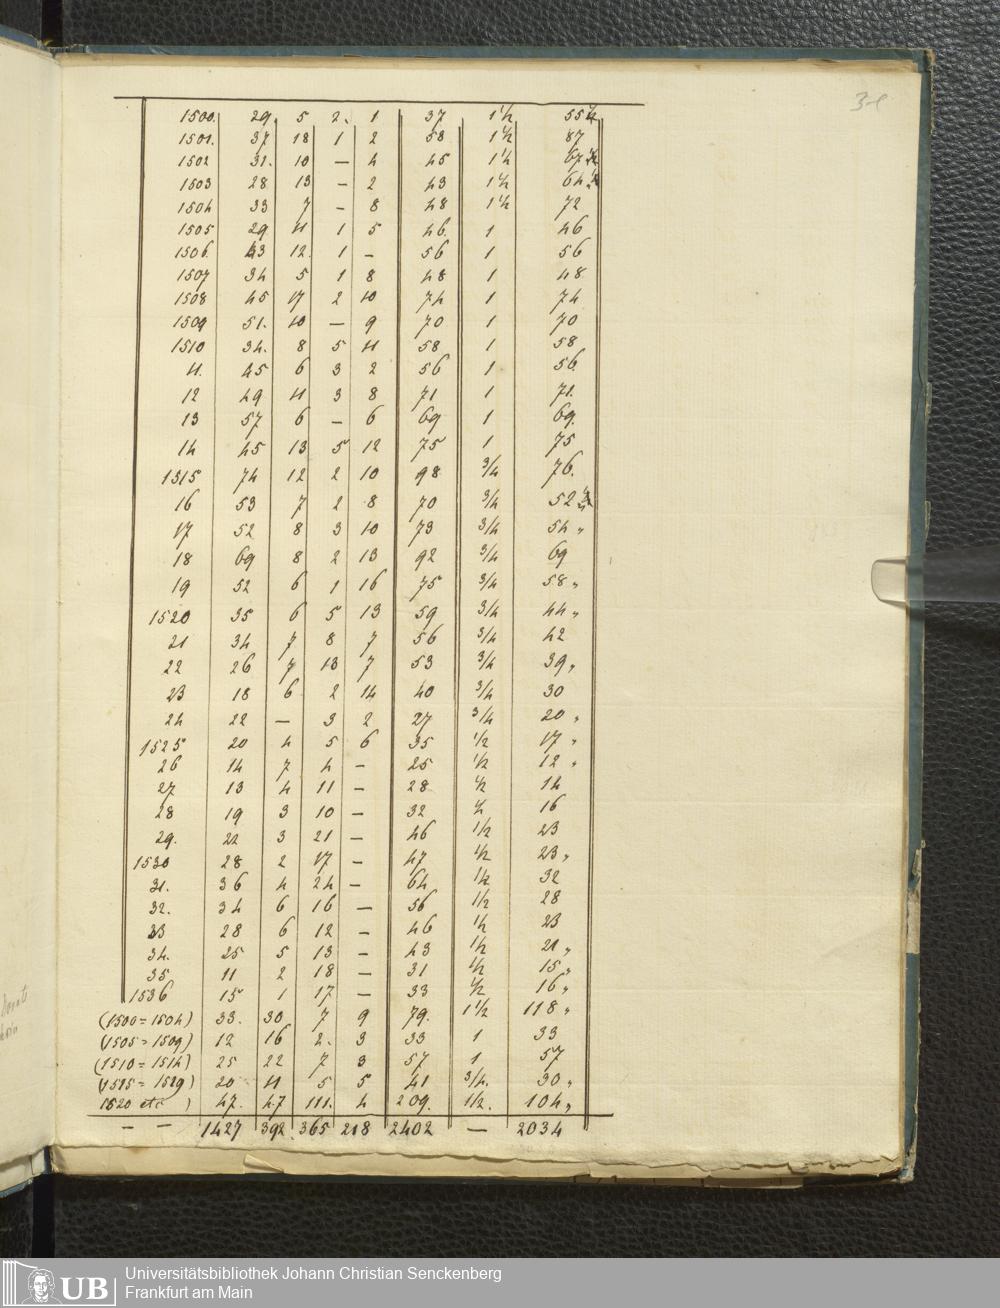 31
1500. 29 5 2. 1 37 1½ 55½
1501. 37 18 1 2 58 1½ 87
1502 31. 10 — 4 45 1½ 67½
1503 28 13 — 2 43 1½ 64½
1504 33 7 — 8 48 1½ 72
1505 29 11 1 5 46. 1 46
1506. 43 12. 1 — 56 1 56
1507 34 5 1 8 48 1 48
1508 45 17 2 10 74 1 74
1509 51. 10 — 9 70 1 70
1510 34. 8 5 11 58 1 58
11. 45 6 3 2 56 1 56
12 49 11 3 8 71 1 71.
13 57 6 — 6 69 1 69.
14 45 13 5 12 75 1 75
1515 74 12 2 10 98 3/4 76.
16 53 7 2 8 70 3/4 52½
17 52 8 3 10 73 3/4 54 "
18 69 8 2 13 92 3/4 69
19 52 6 1 16 75 3/4 58 "
1520 35 6 5 13 59 3/4 44 "
21 34 7 8 7 56 3/4 42
22 26 7 13 7 53 3/4 39 "
23 18 6 2 14 40 3/4 30
24 22 — 3 2 27 3/4 20 "
1525 20 4 5 6 35 1/2 17 "
26 14 7 4 — 25 1/2 12 "
27 13 4 11 — 28 1/2 14
28 19 3 10 — 32 1/2 16
29. 22 3 21 — 46 1/2 23
1530 28 2 17 — 47 1/2 23 "
31. 36 4 24 — 64 1/2 32
32. 34 6 16 — 56 1/2 28
33 28 6 12 — 46 1/2 23
34. 25 5 13 — 43 1/2 21 "
35 11 2 18 — 31 1/2 15 "
1536 15 1 17 — 33 1/2 16 "
(1500=1504) 33. 30 7 9 79. 1½ 118 "
(1505=1509) 12 16 2. 3 33 1 33
(1510=1514) 25 22 7 3 57 1 57
(1515=1519) 20 11 5 5 41 3/4. 30 "
1520 etc ) 47. 47 111. 4 209. 1/2. 104 "
— — 1427 392 365 218 2402 — 2034
UB Universitätsbibliothek Johann Christian Senckenberg
Frankfurt am Main